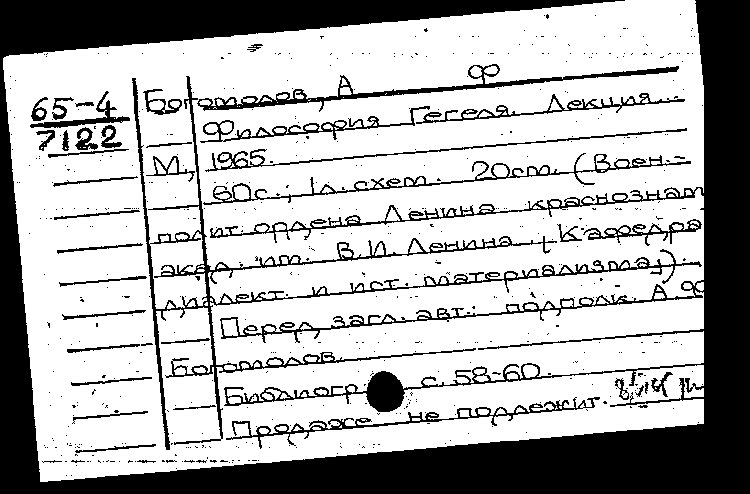 65-4
7122
Богомолов, А Ф
Философия Гегеля. Лекция...
М., 1965.
60с.; 1л.схем. 20см. (Воен.-
полит. ордена Ленина краснознам
акад. им. В.И. Ленина. [Кафедра
диалект. и ист. материализма])..
Перед загл. авт.: подполк. А.Ф
Богомолов.
Библиогр. с. 58-60.
Продаже не подлежит.